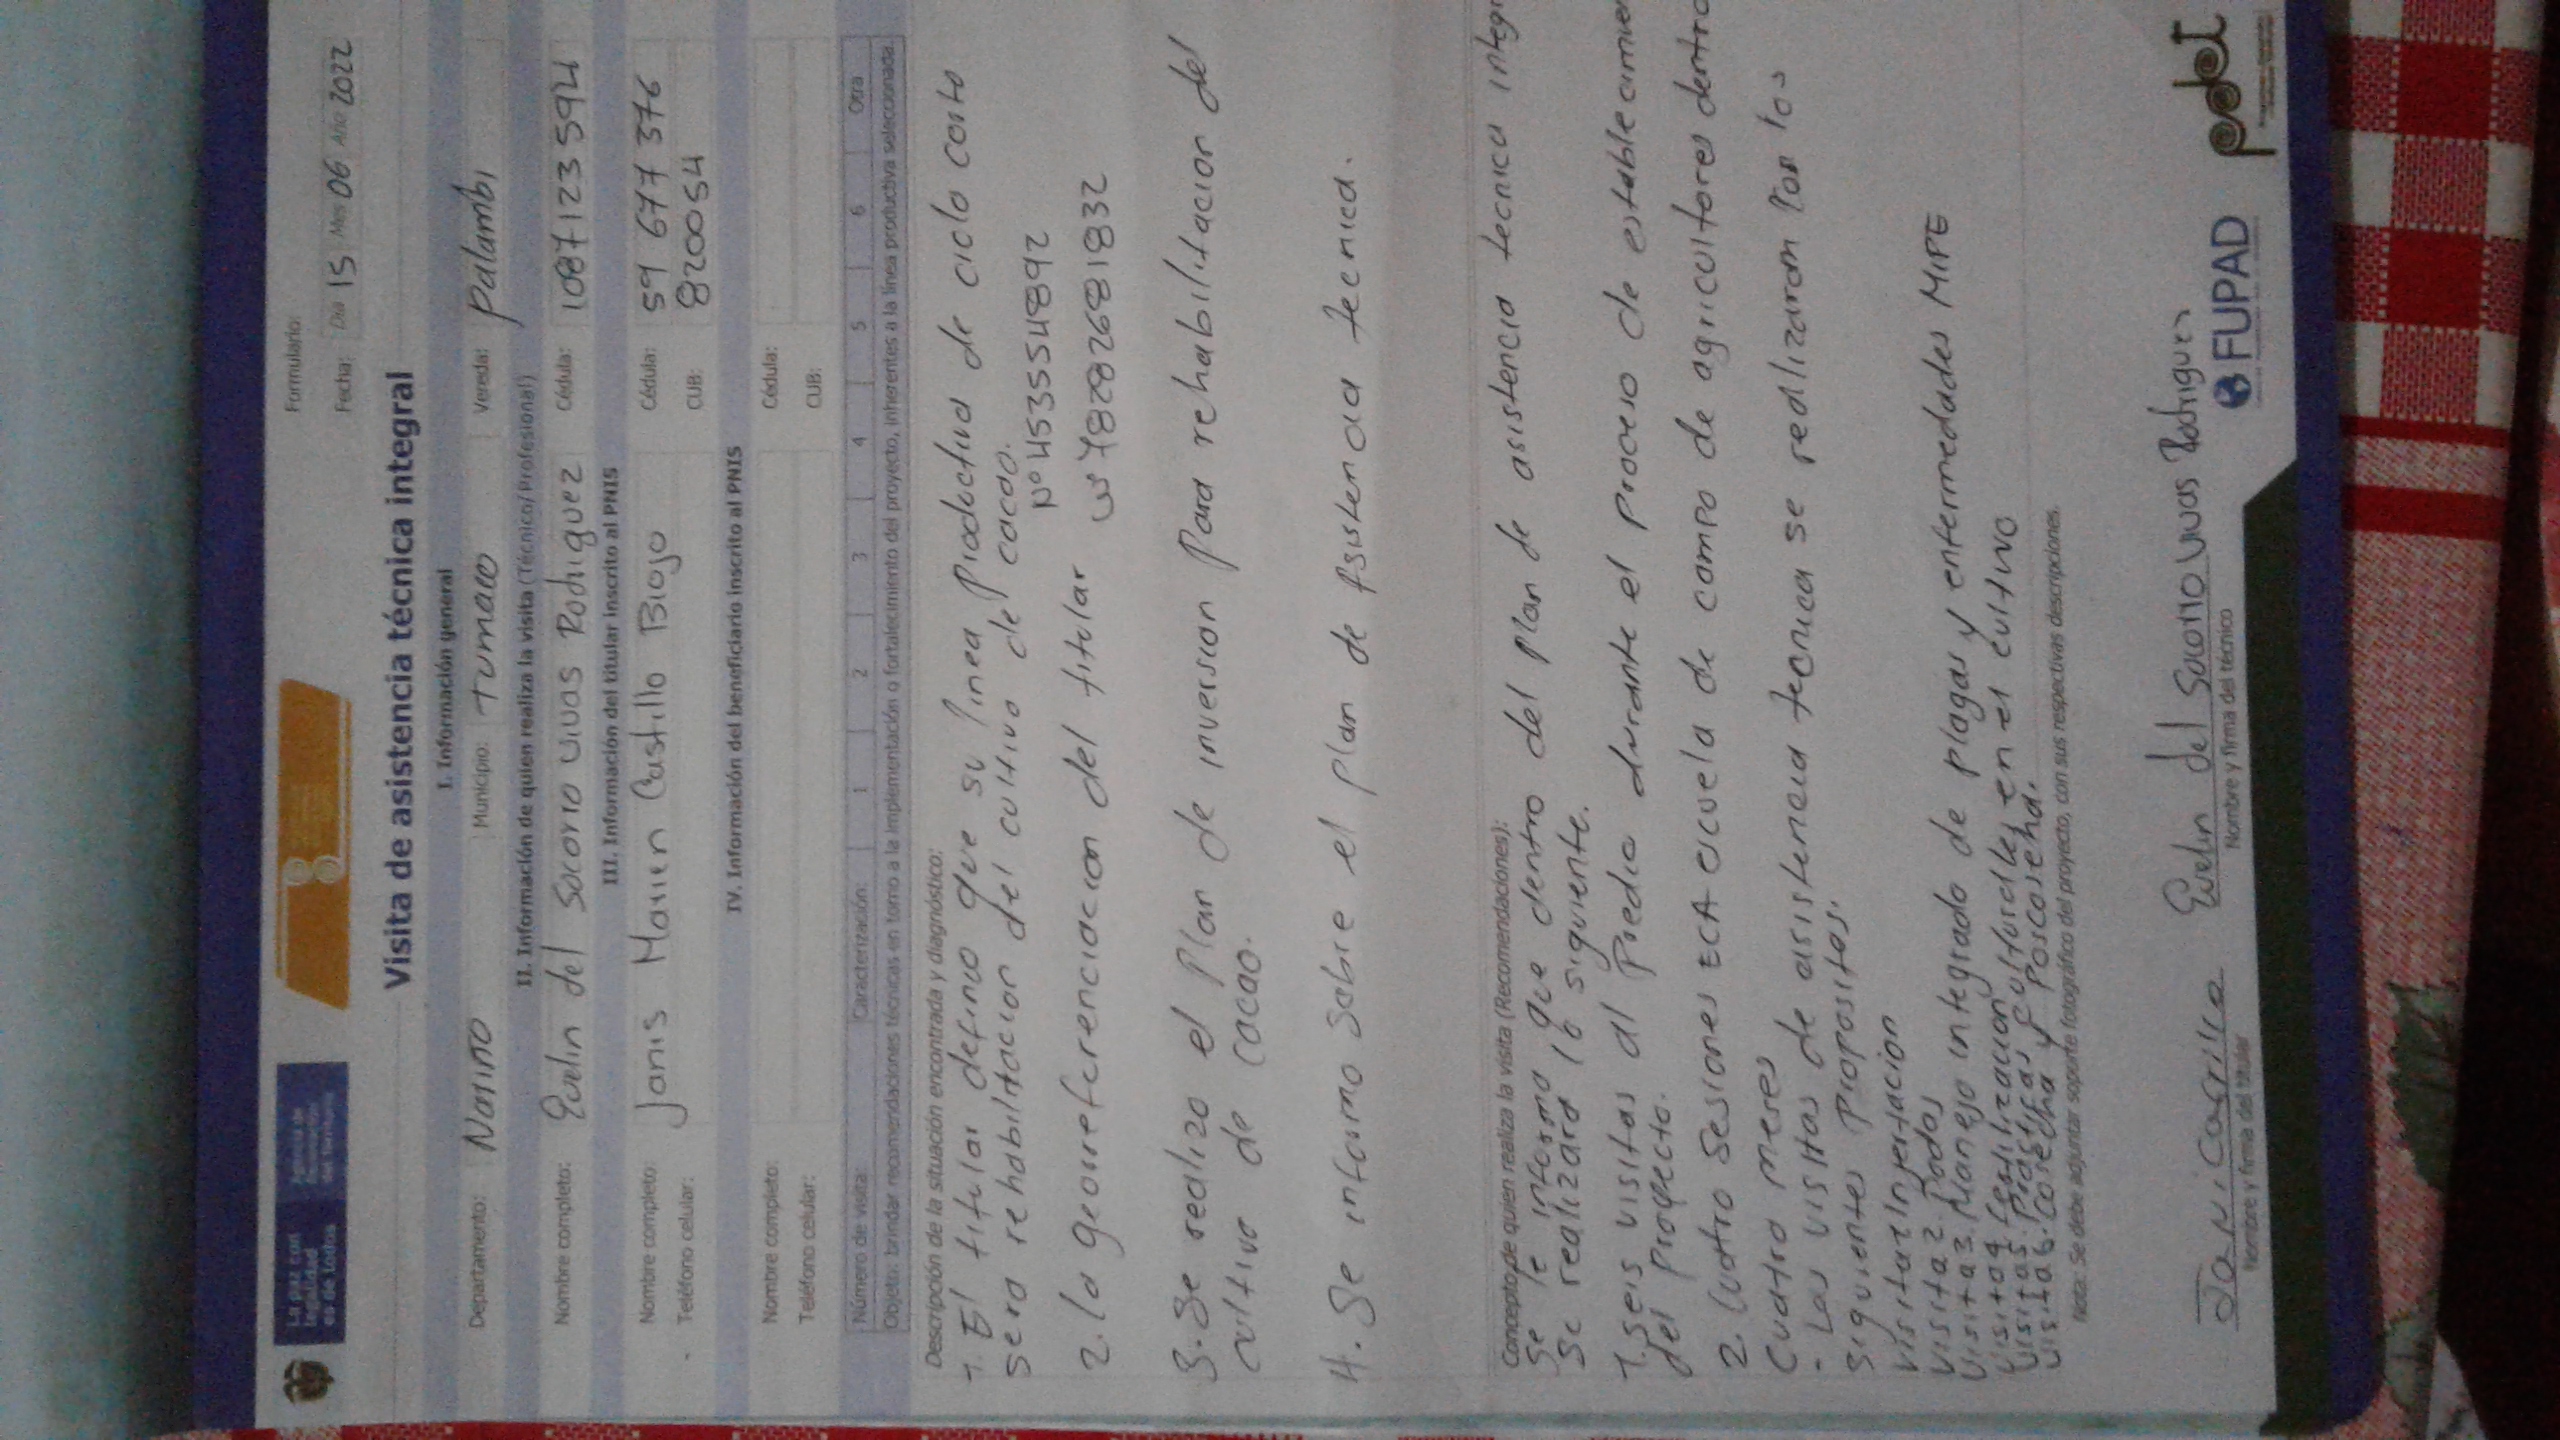 La paz con
legalidad
es de todos
Agencia de
Renovación
del Territorio
Formulario:
Fecha: Día 15 Mes 06 Año 2022
Visita de asistencia técnica integral
I. Información general
Departamento: Nariño Municipio: Tumaco Vereda: Palambi
II. Información de quien realiza la visita (Técnico/Profesional)
Nombre completo: Evelin del Socorro vivas Rodriguez Cédula: 1087123594
III. Información del titular inscrito al PNIS
Nombre completo: Janis Marien Castillo Biojo Cédula: 59 677 376
Teléfono celular: CUB: 820054
IV. Información del beneficiario inscrito al PNIS
Nombre completo: Cédula:
Teléfono celular: CUB:
Número de visita: Caracterización: 1 2 3 4 5 6 Otra
Objeto: brindar recomendaciones técnicas en torno a la implementación o fortalecimiento del proyecto, inherentes a la línea productiva seleccionada.
Descripción de la situación encontrada y diagnóstico:
1. El titular definio que su linea productiva de ciclo corto
sera rehabilitacion del cultivo de cacao.
N° 4535554892
2. la georreferenciacion del titular W° 78282681832
3. Se realizo el Plan de inversion Para rehabilitacion del
cultivo de cacao.
4. Se informo sobre el plan de Asistencia tecnica.
Concepto de quien realiza la visita (Recomendaciones):
Se le informo que dentro del plan de asistencia tecnica integr
Se realizara lo siguiente.
1. seis visitas al Predio durante el proceso de establecimien
del proyecto.
2. Cuatro sesiones ECA escuela de campo de agricultores dentro
Cuatro meses
- Las visitas de asistencia tecnica se realizaran Por los
siguientes Propositos.
Visita 1 Injertacion
Visita 2. Podas
Visita 3. Manejo integrado de plagas y enfermedades MIPE
Visita 4 fertilizacion
Visita 5. Practicas culturales en el cultivo
Visita 6. Cosecha y Poscosecha.
Nota: Se debe adjuntar soporte fotográfico del proyecto, con sus respectivas descripciones.
Evelin del Socorro vivas Rodriguez
Nombre y firma del titular
Nombre y firma del técnico
FUPAD
pdet